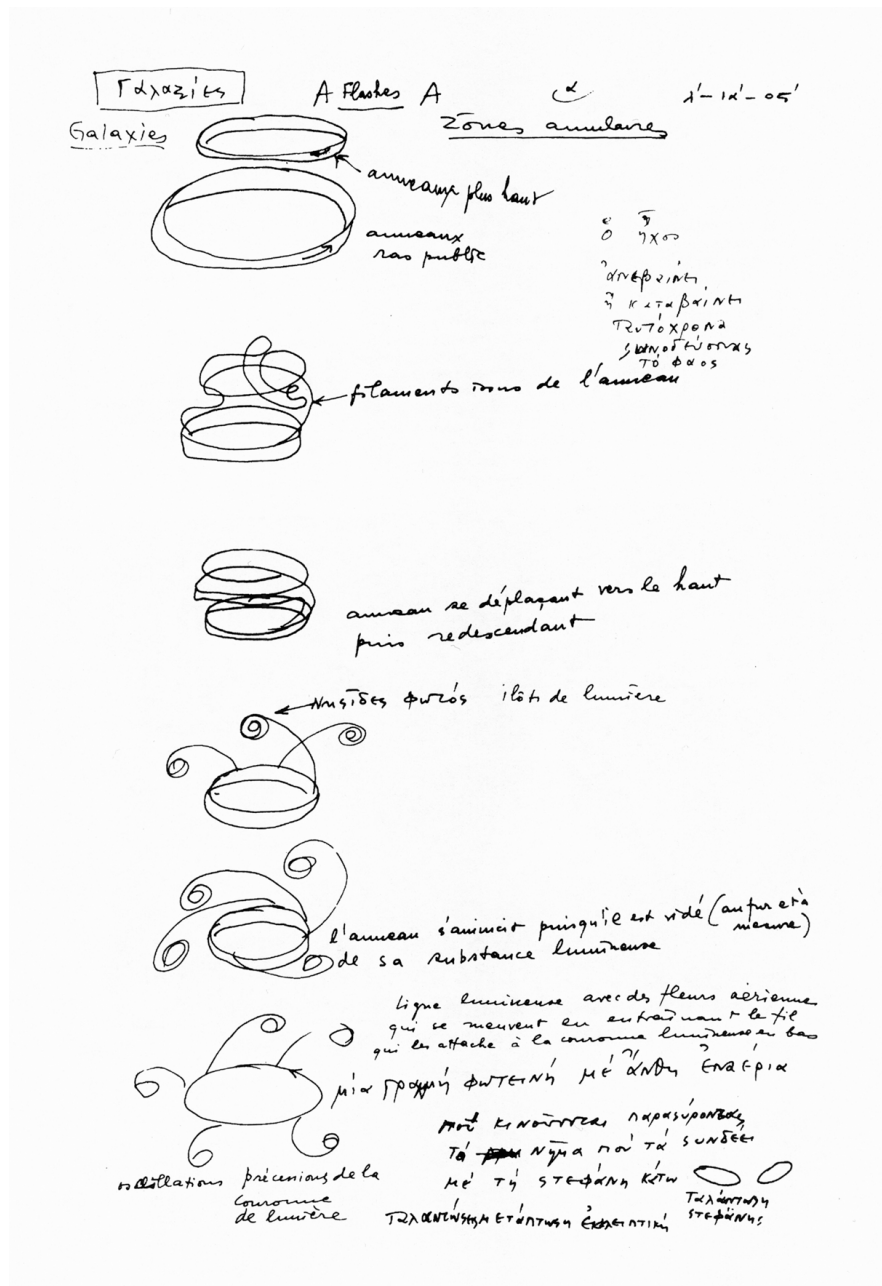 Γαλαξίες
A Flashes A
Galaxies
Zones annulaires
anneaux plus haut
anneaux
ras public
ὁ ἦχος
ἀνεβαίνει
ἢ καταβαίνει
ταυτόχρονα
συνοδεύοντας
τὸ φάος
filaments issus de l'anneau
anneau se déplaçant vers le haut
puis redescendant
Νησῖδες φωτός îlots de lumière
l'anneau s'amincit puisqu'il est vidé (au fur et à
mesure)
de sa substance lumineuse
Ligne lumineuse avec des fleurs aériennes
qui se meuvent en entraînant le fil
qui les attache à la couronne lumineuse en bas
μία γραμμή φωτεινή μέ ἄνθη ἐναέρια
ποὺ κινοῦνται παρασύροντας
τό νῆμα πού τά συνδέει
μέ τή στεφάνη κάτω
oscillations précessions de la
couronne
de lumière
Ταλάντωση
στεφάνης
Ταλαντώσεις μετάπτωση ἐκλειπτική